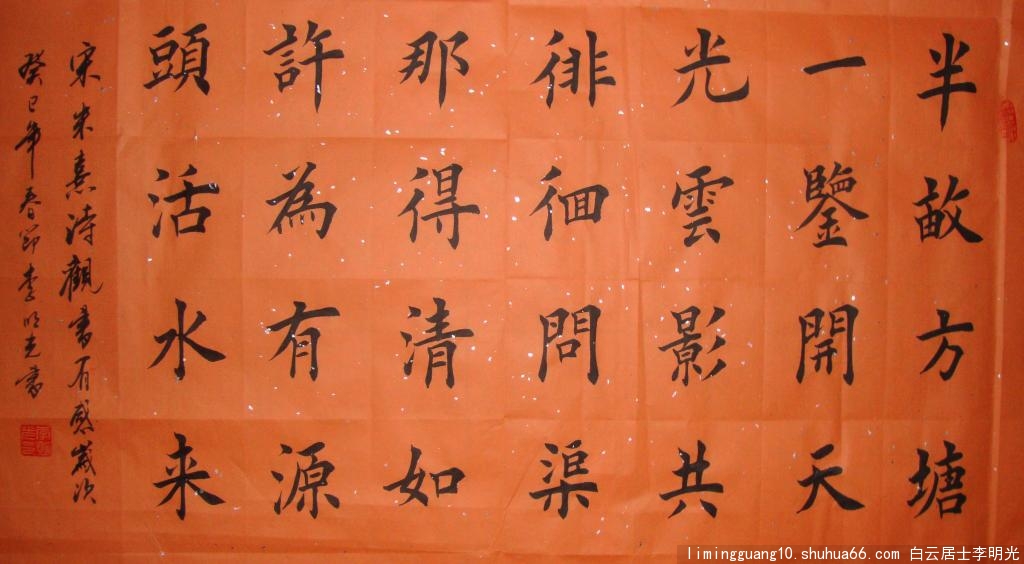 半畝方塘
一鑒開天
光雲影共
徘徊問渠
那得清如
許為有源
頭活水来
宋朱熹诗觀書有感歲次
癸巳年春節李明光書
limingguang10.shuhua66.com 白云居士李明光